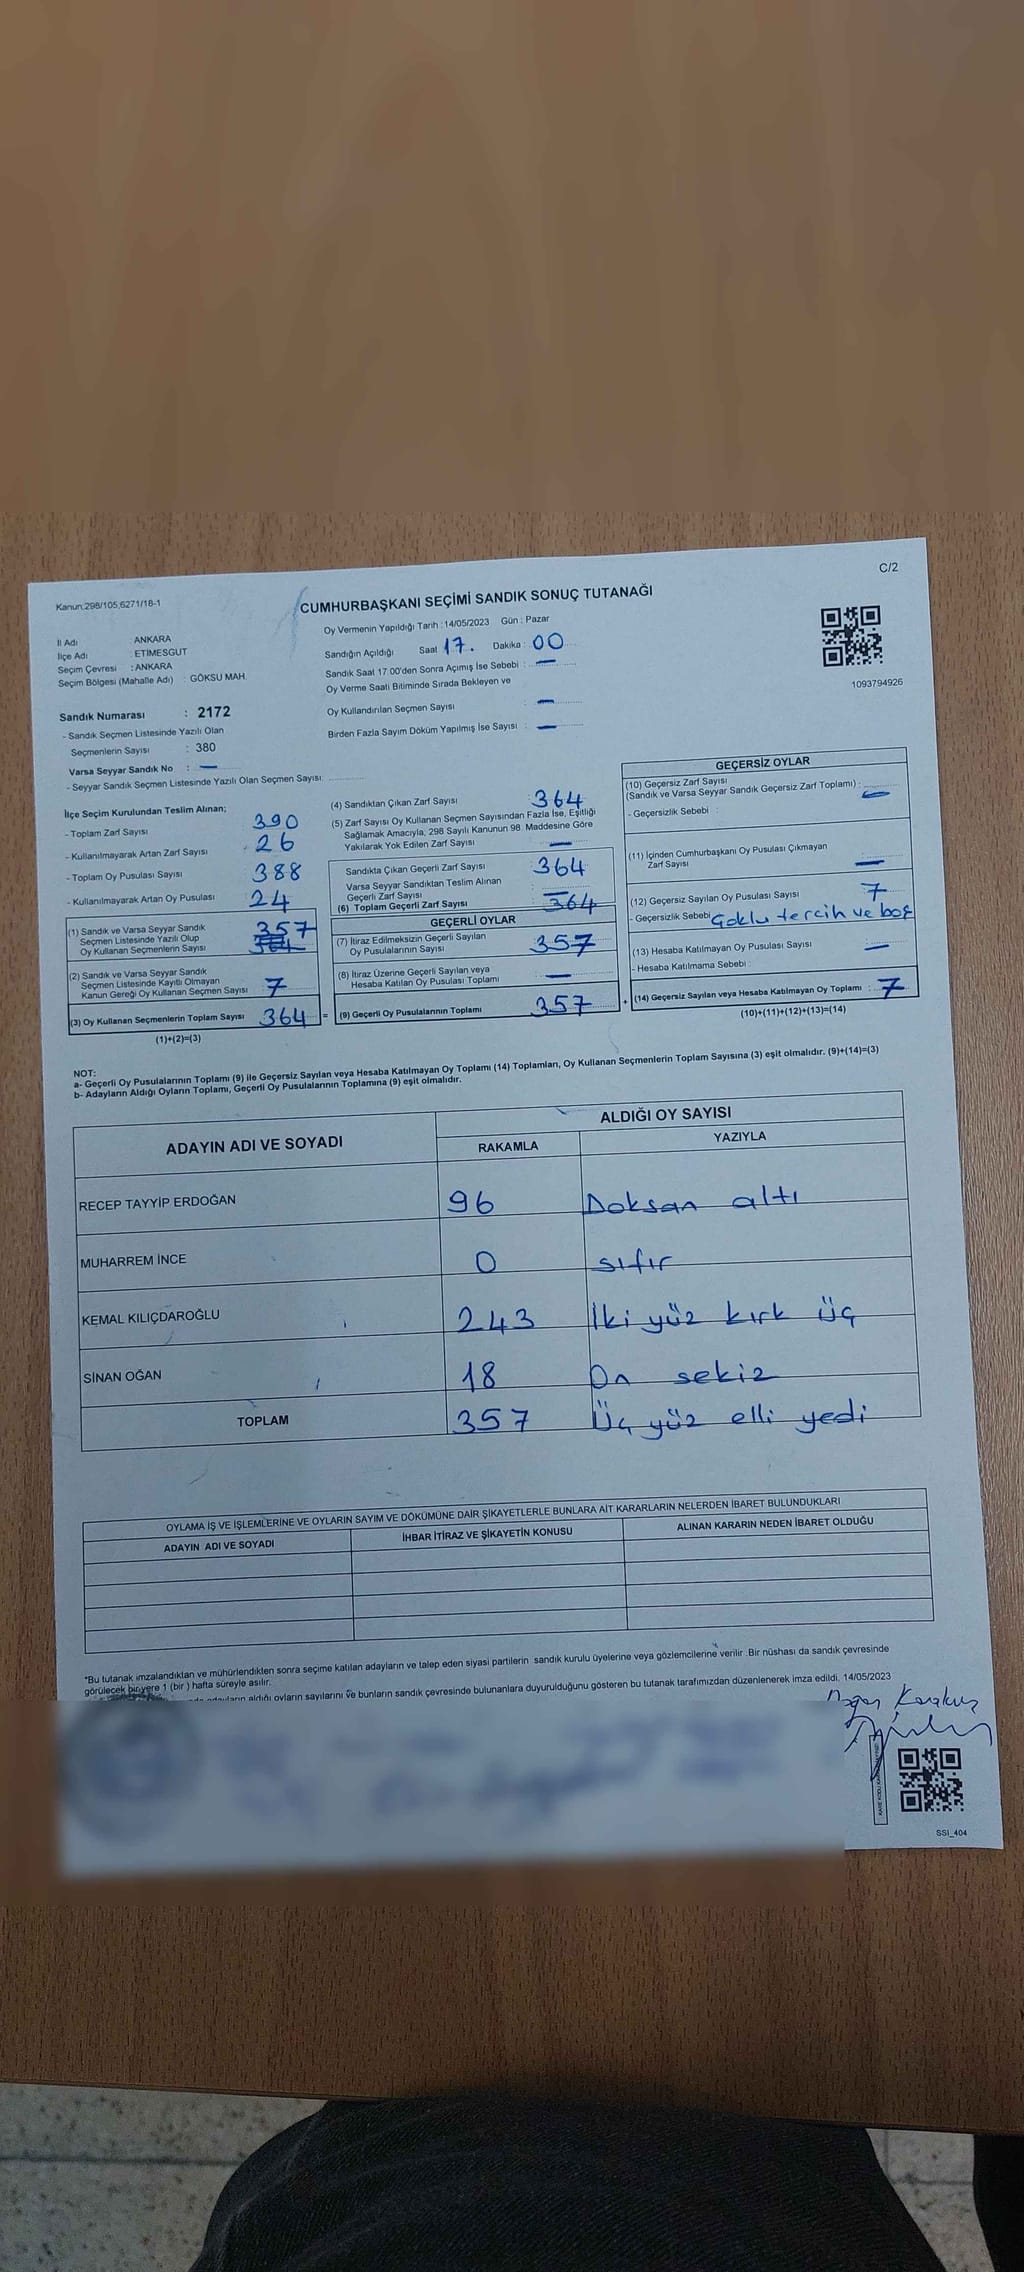 C/2
Kanun:298/105,6271/18-1
CUMHURBAŞKANI SEÇİMİ SANDIK SONUÇ TUTANAĞI
İl Adı : ANKARA
İlçe Adı : ETİMESGUT
Seçim Çevresi : ANKARA
Seçim Bölgesi (Mahalle Adı) : GÖKSU MAH.
Sandık Numarası : 2172
- Sandık Seçmen Listesinde Yazılı Olan
Seçmenlerin Sayısı : 380
Varsa Seyyar Sandık No : —
- Seyyar Sandık Seçmen Listesinde Yazılı Olan Seçmen Sayısı:
Oy Vermenin Yapıldığı Tarih : 14/05/2023 Gün : Pazar
Sandığın Açıldığı Saat 17. Dakika : 00
Sandık Saat 17:00'den Sonra Açımış İse Sebebi : —
Oy Verme Saati Bitiminde Sırada Bekleyen ve
Oy Kullandırılan Seçmen Sayısı : —
Birden Fazla Sayım Döküm Yapılmış İse Sayısı : —
1093794926
İlçe Seçim Kurulundan Teslim Alınan;
- Toplam Zarf Sayısı 390
- Kullanılmayarak Artan Zarf Sayısı 26
- Toplam Oy Pusulası Sayısı 388
- Kullanılmayarak Artan Oy Pusulası 24
(1) Sandık ve Varsa Seyyar Sandık
Seçmen Listesinde Yazılı Olup
Oy Kullanan Seçmenlerin Sayısı 357
(2) Sandık ve Varsa Seyyar Sandık
Seçmen Listesinde Kayıtlı Olmayan
Kanun Gereği Oy Kullanan Seçmen Sayısı 7
(3) Oy Kullanan Seçmenlerin Toplam Sayısı 364 =
(1)+(2)=(3)
(4) Sandıktan Çıkan Zarf Sayısı : 364
(5) Zarf Sayısı Oy Kullanan Seçmen Sayısından Fazla İse, Eşitliği
Sağlamak Amacıyla, 298 Sayılı Kanunun 98. Maddesine Göre
Yakılarak Yok Edilen Zarf Sayısı —
Sandıkta Çıkan Geçerli Zarf Sayısı 364
Varsa Seyyar Sandıktan Teslim Alınan
Geçerli Zarf Sayısı —
(6) Toplam Geçerli Zarf Sayısı 364
GEÇERLİ OYLAR
(7) İtiraz Edilmeksizin Geçerli Sayılan
Oy Pusulalarının Sayısı 357
(8) İtiraz Üzerine Geçerli Sayılan veya
Hesaba Katılan Oy Pusulası Toplamı —
(9) Geçerli Oy Pusulalarının Toplamı 357 +
GEÇERSİZ OYLAR
(10) Geçersiz Zarf Sayısı
(Sandık ve Varsa Seyyar Sandık Geçersiz Zarf Toplamı) : —
- Geçersizlik Sebebi :
(11) İçinden Cumhurbaşkanı Oy Pusulası Çıkmayan
Zarf Sayısı —
(12) Geçersiz Sayılan Oy Pusulası Sayısı 7
- Geçersizlik Sebebi Çoklu tercih ve boş
(13) Hesaba Katılmayan Oy Pusulası Sayısı —
- Hesaba Katılmama Sebebi :
(14) Geçersiz Sayılan veya Hesaba Katılmayan Oy Toplamı : 7
(10)+(11)+(12)+(13)=(14)
NOT:
a- Geçerli Oy Pusulalarının Toplamı (9) ile Geçersiz Sayılan veya Hesaba Katılmayan Oy Toplamı (14) Toplamları, Oy Kullanan Seçmenlerin Toplam Sayısına (3) eşit olmalıdır. (9)+(14)=(3)
b- Adayların Aldığı Oyların Toplamı, Geçerli Oy Pusulalarının Toplamına (9) eşit olmalıdır.
ADAYIN ADI VE SOYADI
ALDIĞI OY SAYISI
RAKAMLA YAZIYLA
RECEP TAYYİP ERDOĞAN 96 Doksan altı
MUHARREM İNCE 0 sıfır
KEMAL KILIÇDAROĞLU 243 İki yüz kırk üç
SİNAN OĞAN 18 On sekiz
TOPLAM 357 Üç yüz elli yedi
OYLAMA İŞ VE İŞLEMLERİNE VE OYLARIN SAYIM VE DÖKÜMÜNE DAİR ŞİKAYETLERLE BUNLARA AİT KARARLARIN NELERDEN İBARET BULUNDUKLARI
ADAYIN ADI VE SOYADI İHBAR İTİRAZ VE ŞİKAYETİN KONUSU ALINAN KARARIN NEDEN İBARET OLDUĞU
*Bu tutanak imzalandıktan ve mühürlendikten sonra seçime katılan adayların ve talep eden siyasi partilerin sandık kurulu üyelerine veya gözlemcilerine verilir. Bir nüshası da sandık çevresinde
görülecek bir yere 1 (bir) hafta süreyle asılır.
aldığı oyların sayılarını ve bunların sandık çevresinde bulunanlara duyurulduğunu gösteren bu tutanak tarafımızdan düzenlenerek imza edildi. 14/05/2023
SSI_404